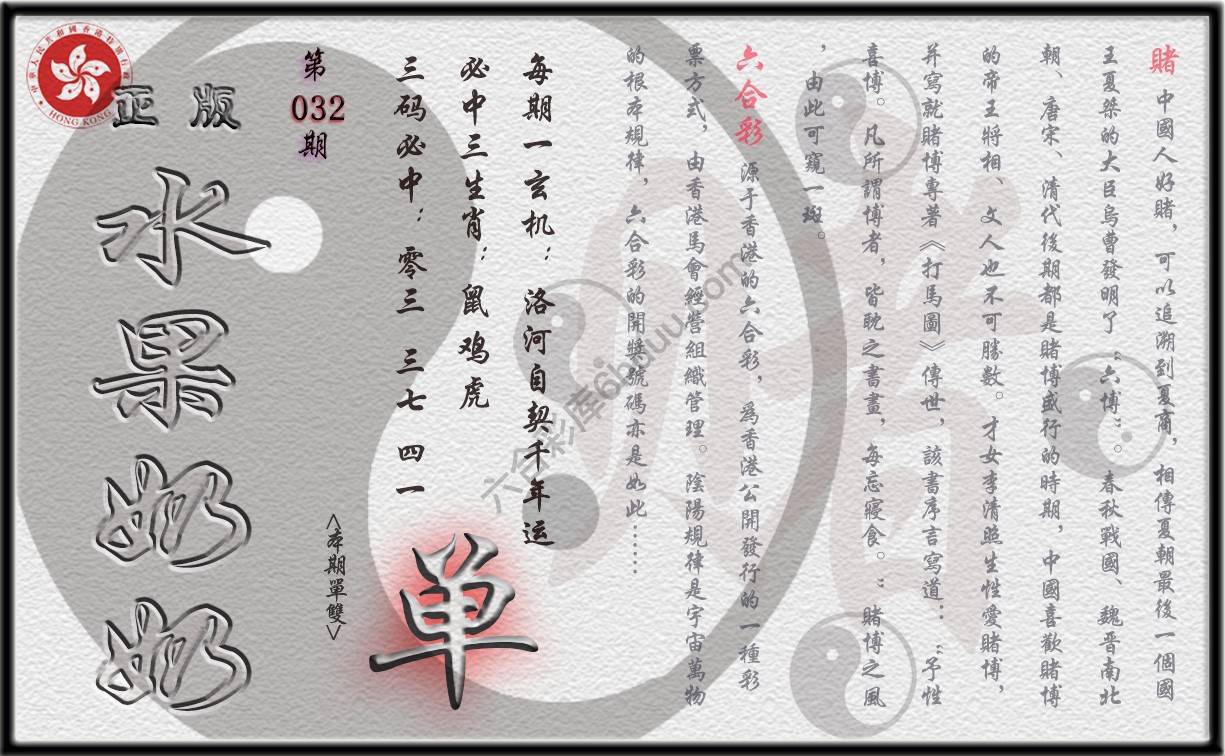 賭 中國人好賭，可以追溯到夏商，相傳夏朝最後一個國
王夏桀的大臣烏曹發明了“六博”。春秋戰國、魏晋南北
朝、唐宋、清代後期都是賭博盛行的時期，中國喜歡賭博
的帝王將相、文人也不可勝數。才女李清照生性愛賭博，
并寫就賭博專著《打馬圖》傳世，該書序言寫道：“予性
喜博。凡所謂博者，皆耽之書畫，每忘寢食。”賭博之風
，由此可窺一斑。
六合彩 源于香港的六合彩，為香港公開發行的一種彩
票方式，由香港馬會經營組織管理。陰陽規律是宇宙萬物
的根本規律，六合彩的開獎號碼亦是如此……
每期一玄机：洛河自契千年运
必中三生肖：鼠鸡虎
三码必中：零三 三七 四一
<本期單雙>
单
第
032
期
正版
水果奶奶
HONG KONG
六合彩库6hduu.com